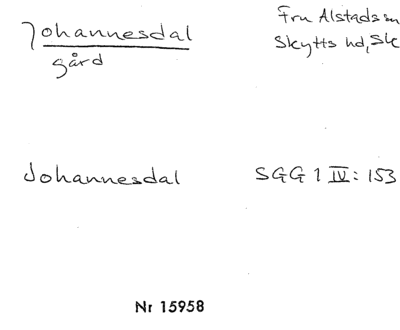 Johannesdal
Fru Alstads sn
gård
Skytts hd, Sk
Johannesdal
SGG 1 IV: 153
Nr 15958